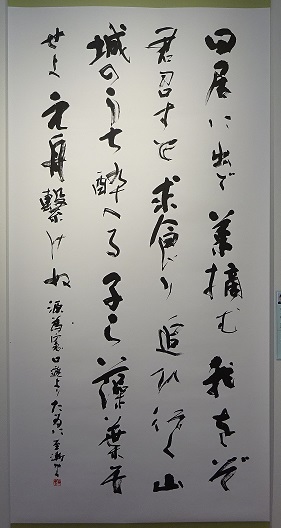 田居に出で菜摘む我をぞ
君召すと求食り追ひ行く山
城のうち酔へる子ら藻葉干
せよえ舟繋けぬ 源為憲口遊よりたゐに